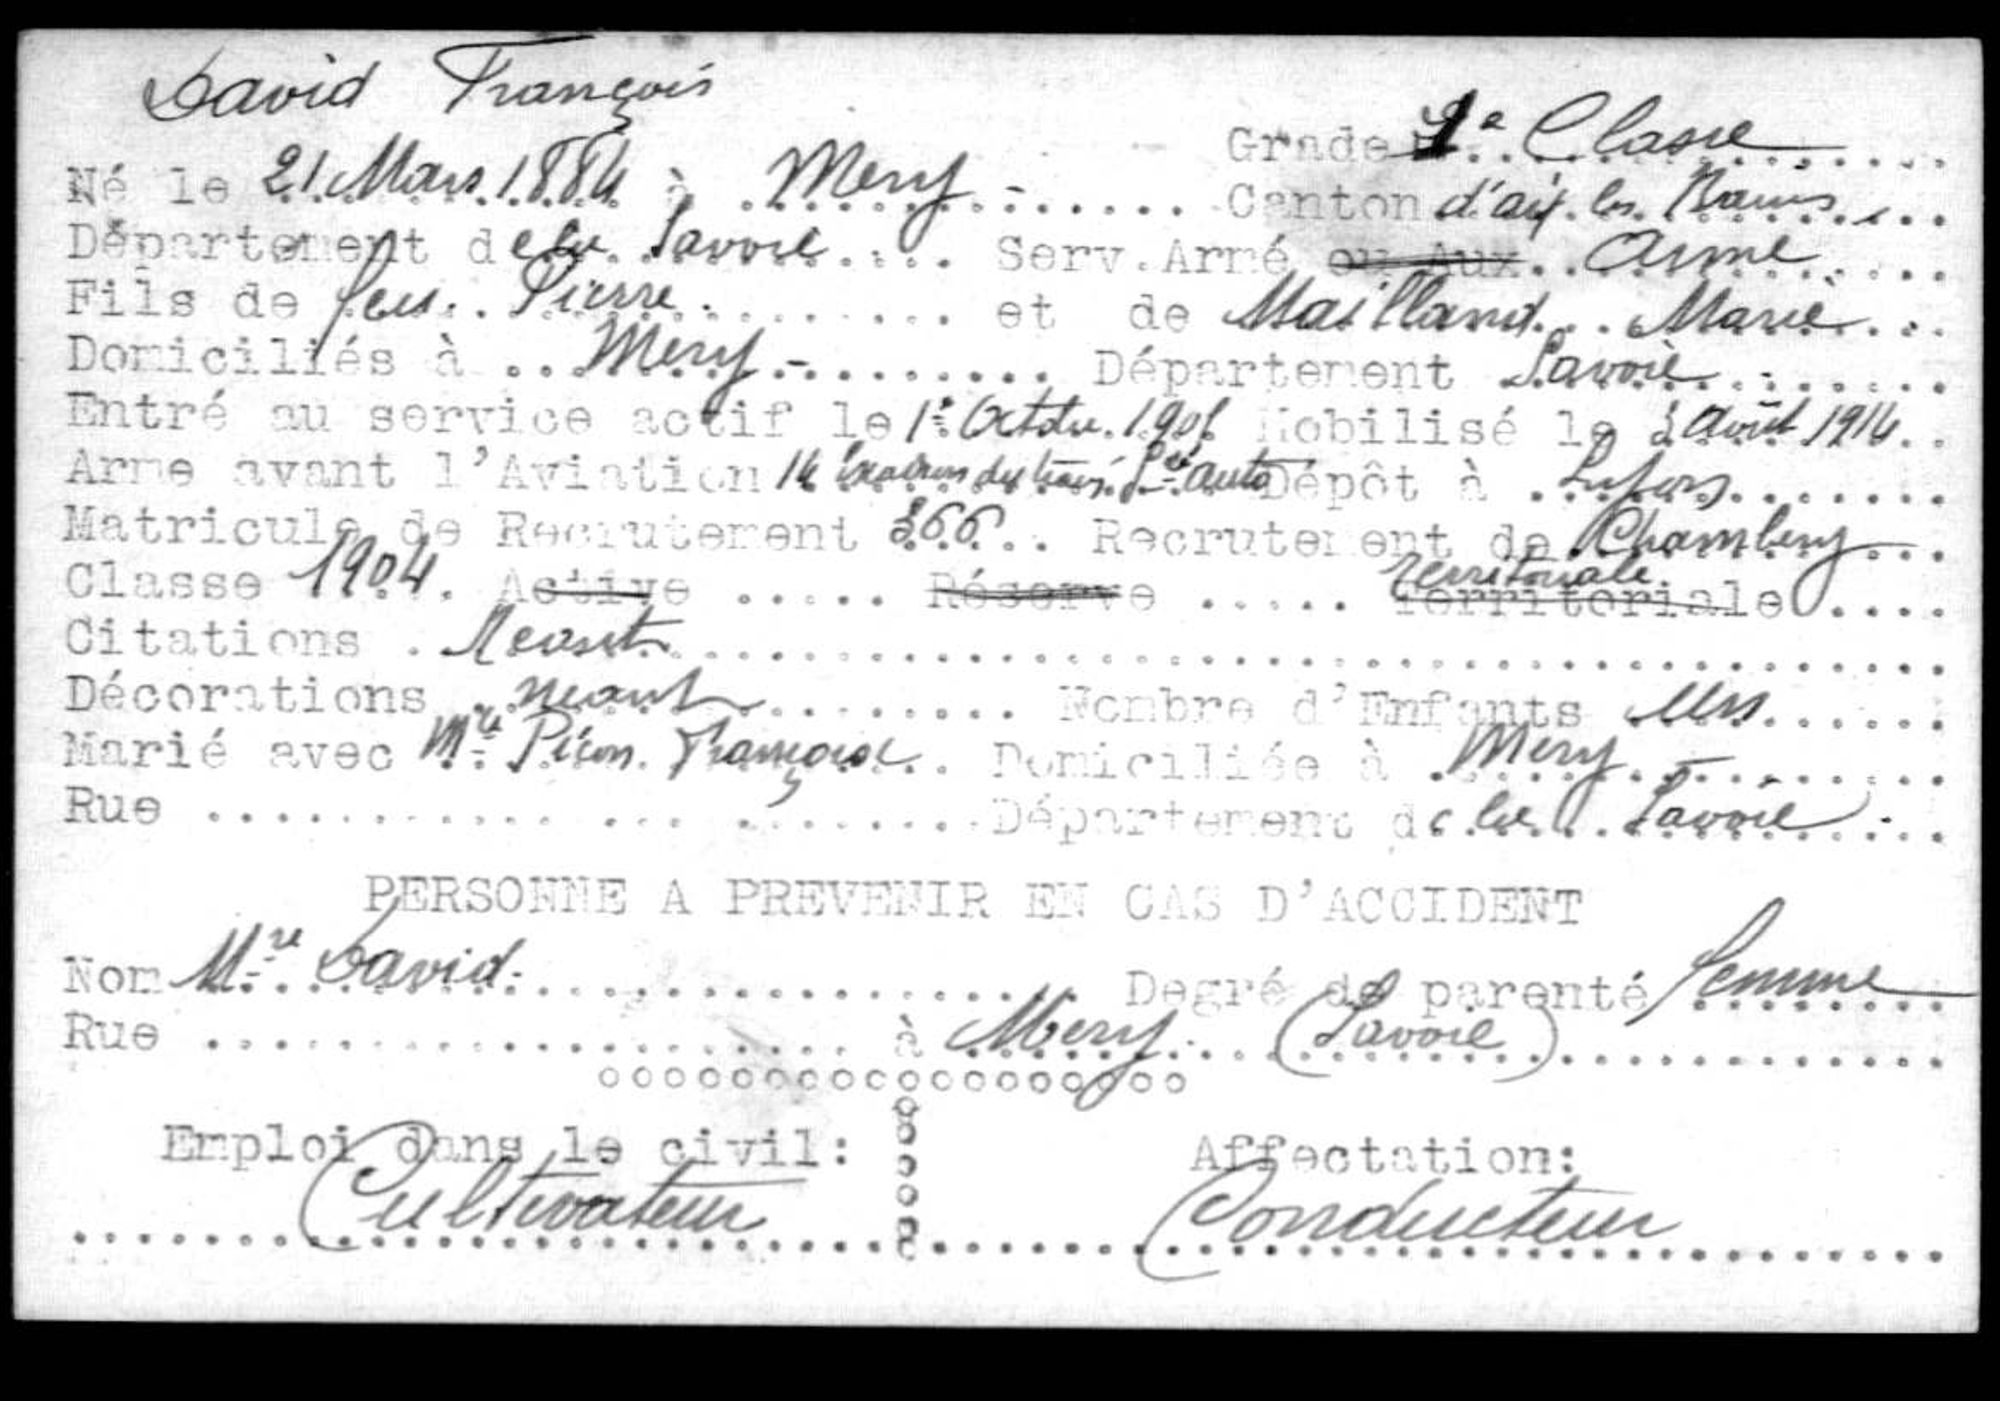 David François
Grade 2e Classe
Né le 21 Mars 1884 à Mery - Canton d'aix les Bains
Département de la Savoie Serv. Armé ou Aux. Armé
Fils de feu Pierre et de Mailland Marie
Domiciliés à Mery - Département Savoie
Entré au service actif le 1er Octobre 1905 Mobilisé le 3 Août 1914
Arme avant l'Aviation 14 Escadron des Auto Dépôt à
Matricule de Recrutement 366 Recrutement de Chambery
Classe 1904 Active Réserve Territoriale Territoriale
Citations Neant
Décorations neant Nombre d'Enfants un
Marié avec Mme Picon Françoise Domiciliée à Mery
Rue Département de la Savoie
PERSONNE A PREVENIR EN CAS D'ACCIDENT
Nom Mme David Degré de parenté femme
Rue à Mery (Savoie)
Emploi dans le civil: Affectation:
Cultivateur Conducteur